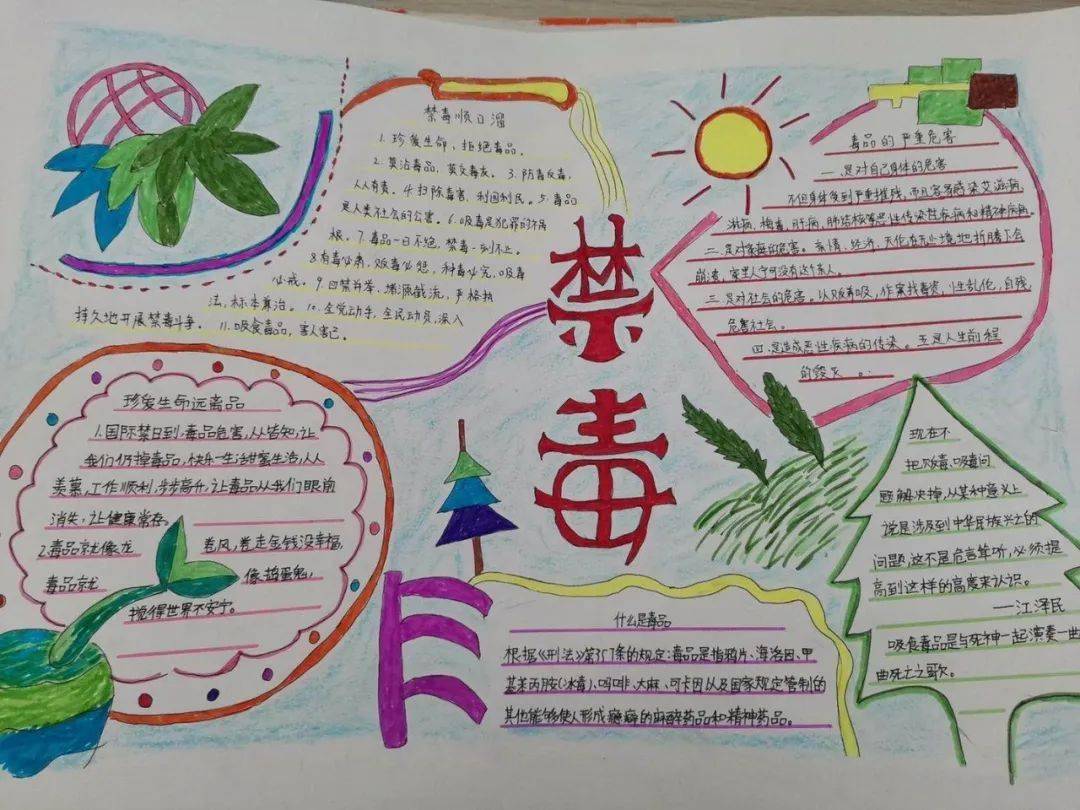 禁毒顺口溜
1. 珍爱生命、拒绝毒品。
2. 莫沾毒品，莫交毒友。3. 防毒反毒，
人人有责。4. 扫除毒害，利国利民。5. 毒品
是人类社会的公害。6. 吸毒是犯罪的不归
根。7. 毒品一日不绝，禁毒一刻不止。
8. 有毒必肃，贩毒必惩，种毒必究，吸毒
必戒。9. 四禁并举、堵源截流，严格执
法，标本兼治。10. 全党动手，全民动员，深入
持久地开展禁毒斗争。11. 吸食毒品，害人害己。
禁毒
毒品的严重危害
一.是对自己身体的危害
不但身体受到严重摧残，而且容易感染艾滋病、
淋病、梅毒、肝病、肺结核等恶性传染性疾病和精神疾病。
二.是对家庭的危害。亲情、经济、天伦在无止境地折腾下会
崩溃，家里人宁可没有这个亲人。
三.是对社会的危害。以贩养吸，作案找毒资，性乱伦，自残，
危害社会。
四.是造成恶性疾病的传染。五是人生前程
的毁灭。
珍爱生命远离品
1.国际禁日到，毒品危害，人人皆知，让
我们仍掉毒品，快乐一生活甜蜜生活，人人
羡慕，工作顺利，步步高升，让毒品从我们眼前
消失，让健康常在。
2.毒品京尤像龙 卷风，卷走金钱没幸福，
毒品京尤 像捣蛋鬼，
搅得世界不安宁。
什么是毒品
根据《刑法》第357条的规定：毒品是指鸦片、海洛因、甲
基苯丙胺(冰毒)、吗啡、大麻、可卡因以及国家规定管制的
其他能够使人形成瘾癖的麻醉药品和精神药品。
现在不
把贩毒、吸毒问
题解决掉，从某种意义上
说是涉及到中华民族兴亡的
问题，这不是危言耸听，必须提
高到这样的高度来认识。
——江泽民
吸食毒品是与死神一起演奏一曲
曲死亡之歌。